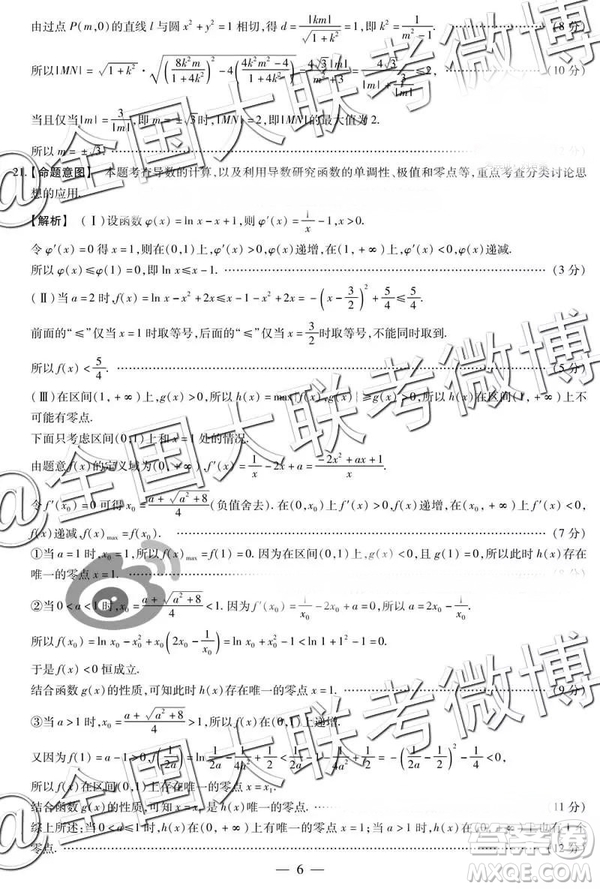 由过点 P(m,0)的直线 l 与圆 x²+y²=1 相切,得 d=|km|/√(1+k²)=1,即 k²=1/(m²-1). (8 分)
所以|MN|=√(1+k²)·√((8k²m/(1+4k²))²-4(4k²m²-4)/(1+4k²))=4√3|m|/(m²+3)=4√3/(|m|+3/|m|)≤2, (10 分)
当且仅当|m|=3/|m|,即 m=±√3时,|MN|=2,即|MN|的最大值为 2.
所以 m=±√3.
21.【命题意图】 本题考查导数的计算,以及利用导数研究函数的单调性、极值和零点等,重点考查分类讨论思
想的应用.
【解析】 (Ⅰ)设函数 φ(x)=ln x-x+1,则 φ′(x)=1/x-1,x>0.
令 φ′(x)=0 得 x=1,则在(0,1)上,φ′(x)>0,φ(x)递增,在(1,+∞)上,φ′(x)<0,φ(x)递减.
所以 φ(x)≤φ(1)=0,即 ln x≤x-1. (3 分)
(Ⅱ)当 a=2 时,f(x)=ln x-x²+2x≤x-1-x²+2x=-(x-3/2)²+5/4≤5/4.
前面的“≤”仅当 x=1 时取等号,后面的“≤”仅当 x=3/2时取等号,不能同时取到.
所以 f(x)<5/4. (5 分)
(Ⅲ)在区间(1,+∞)上,g(x)>0,所以 h(x)=max{f(x),g(x)}≥g(x)>0,所以 h(x)在区间(1,+∞)上不
可能有零点.
下面只考虑区间(0,1)上和 x=1 处的情况.
由题意 f(x)的定义域为(0,+∞),f′(x)=1/x-2x+a=(-2x²+ax+1)/x.
令 f′(x₀)=0 可得 x₀=(a+√(a²+8))/4(负值舍去).在(0,x₀)上 f′(x)>0,f(x)递增,在(x₀,+∞)上 f′(x)<0,
f(x)递减,f(x)max=f(x₀). (7 分)
①当 a=1 时,x₀=1,所以 f(x)max=f(1)=0. 因为在区间(0,1)上,g(x)<0,且 g(1)=0,所以此时 h(x)存在
唯一的零点 x=1. (8 分)
②当 0<a<1 时,x₀=(a+√(a²+8))/4<1. 因为 f′(x₀)=1/x₀-2x₀+a=0,所以 a=2x₀-1/x₀.
所以 f(x₀)=ln x₀-x₀²+x₀(2x₀-1/x₀)=ln x₀+x₀²-1<ln 1+1²-1=0.
于是 f(x)<0 恒成立.
结合函数 g(x)的性质,可知此时 h(x)存在唯一的零点 x=1. (9 分)
③当 a>1 时,x₀=(a+√(a²+8))/4>1,所以 f(x)在(0,1)上递增.
又因为 f(1)=a-1>0,f(1/2a)=ln 1/2a-(1/2a)²+1/2≤1/2a-1-(1/2a)²+1/2=-(1/2a-1/2)²-1/4<0,
所以 f(x)在区间(0,1)上存在唯一的零点 x=x₁.
结合函数 g(x)的性质,可知 x=x₁ 是 h(x)的唯一的零点. (11 分)
综上所述:当 0<a≤1 时,h(x)在(0,+∞)上有唯一的零点 x=1;当 a>1 时,h(x)在(0,+∞)上也有 1 个
零点. (12 分)
— 6 —
@全国大联考微博
@全国大联考微博
@全国大联考微博